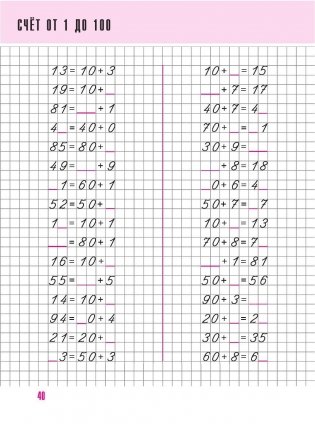 СЧЁТ ОТ 1 ДО 100
13=10+3
19=10+_
81=__+1
4_=40+0
85=80+_
49=__+9
_1=60+1
52=50+_
1_=10+1
__=80+1
16=10+_
55=__+5
14=10+_
94=_0+4
21=20+_
_3=50+3
10+_=15
__+7=17
40+7=4_
70+_=_1
30+9=__
__+8=18
_0+6=4_
50+7=_7
10+_=13
70+8=7_
__+1=81
50+_=56
90+3=__
20+_=2_
30+_=35
60+8=6_
40